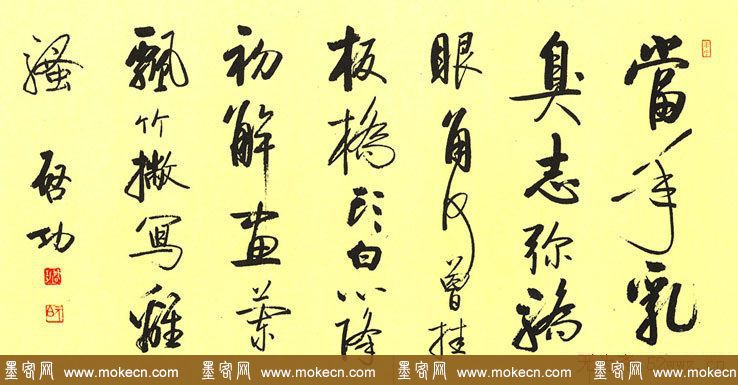 當年乳
臭志弥驕
眼角何曾挂
板橋頭白心降
初解畫蘭
飄竹撇寫離
騷
啓功
墨客网 www.mokecn.com 墨客网 www.mokecn.com 墨客网 www.mokecn.com 墨客网 www.mokecn.com